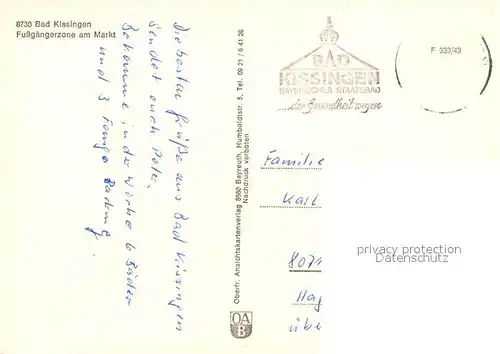 8730 Bad Kissingen
Fußgängerzone am Markt
Die besten Grüße aus Bad Kissingen
sendet euch Peter.
Bekomme in der Woche 6 Bäder
und 3 Fango
Oberfr. Ansichtskartenverlag 8580 Bayreuth, Humboldtstr. 5, Tel. 09 21 / 6 41 26
Nachdruck verboten
OA
B
BAD
KISSINGEN
BAYERISCHES STAATSBAD
...der Gesundheit wegen
F 933/43
Familie
Karl
privacy protection
Datenschutz
807
Hag
übe